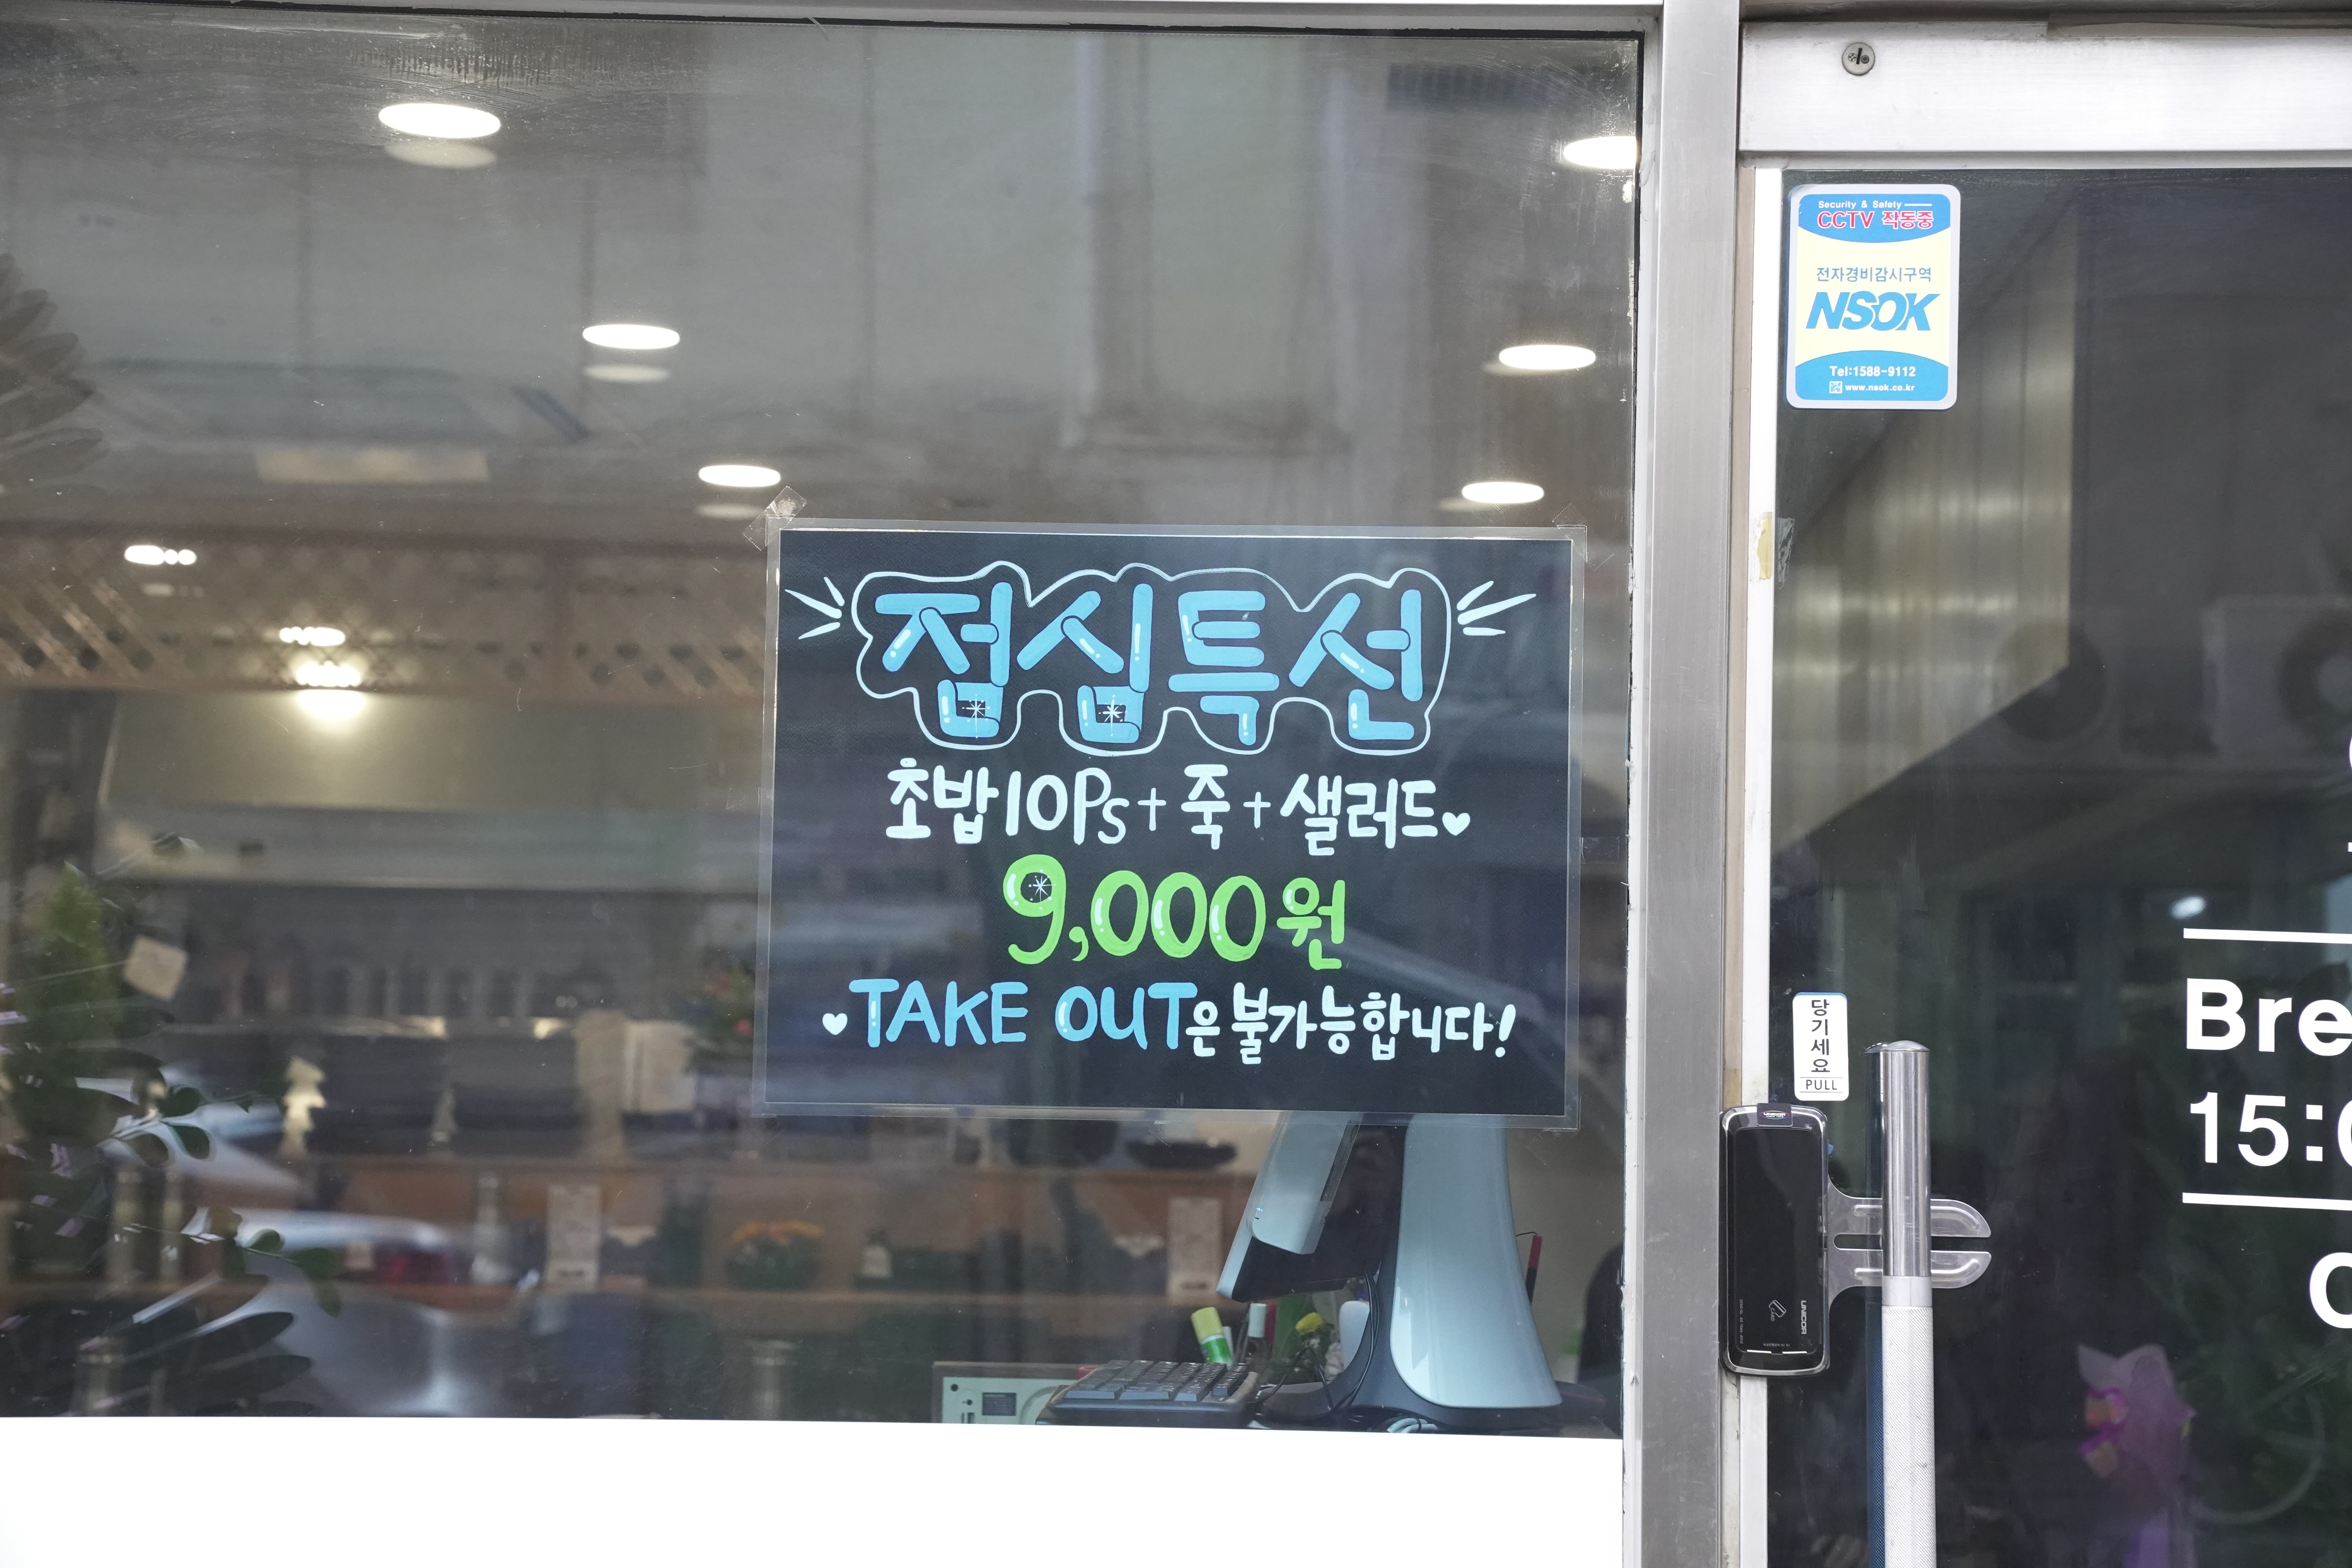 점심특선
초밥10Ps+죽+샐러드
9,000원
TAKE OUT은 불가능합니다!
Security & Safety
CCTV 작동중
전자경비감시구역
NSOK
Tel:1588-9112
www.nsok.co.kr
당기세요
PULL
UNICOR
Bre
15:0